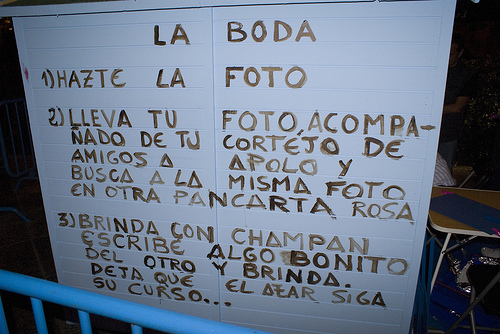 LA BODA
1) HAZTE LA FOTO
2) LLEVA TU FOTO, ACOMPA-
ÑADO DE TU CORTEJO DE
AMIGOS A APOLO Y
BUSCA A LA MISMA FOTO
EN OTRA PANCARTA ROSA
3) BRINDA CON CHAMPAN
ESCRIBE ALGO BONITO
DEL OTRO Y BRINDA.
DEJA QUE EL AZAR SIGA
SU CURSO...